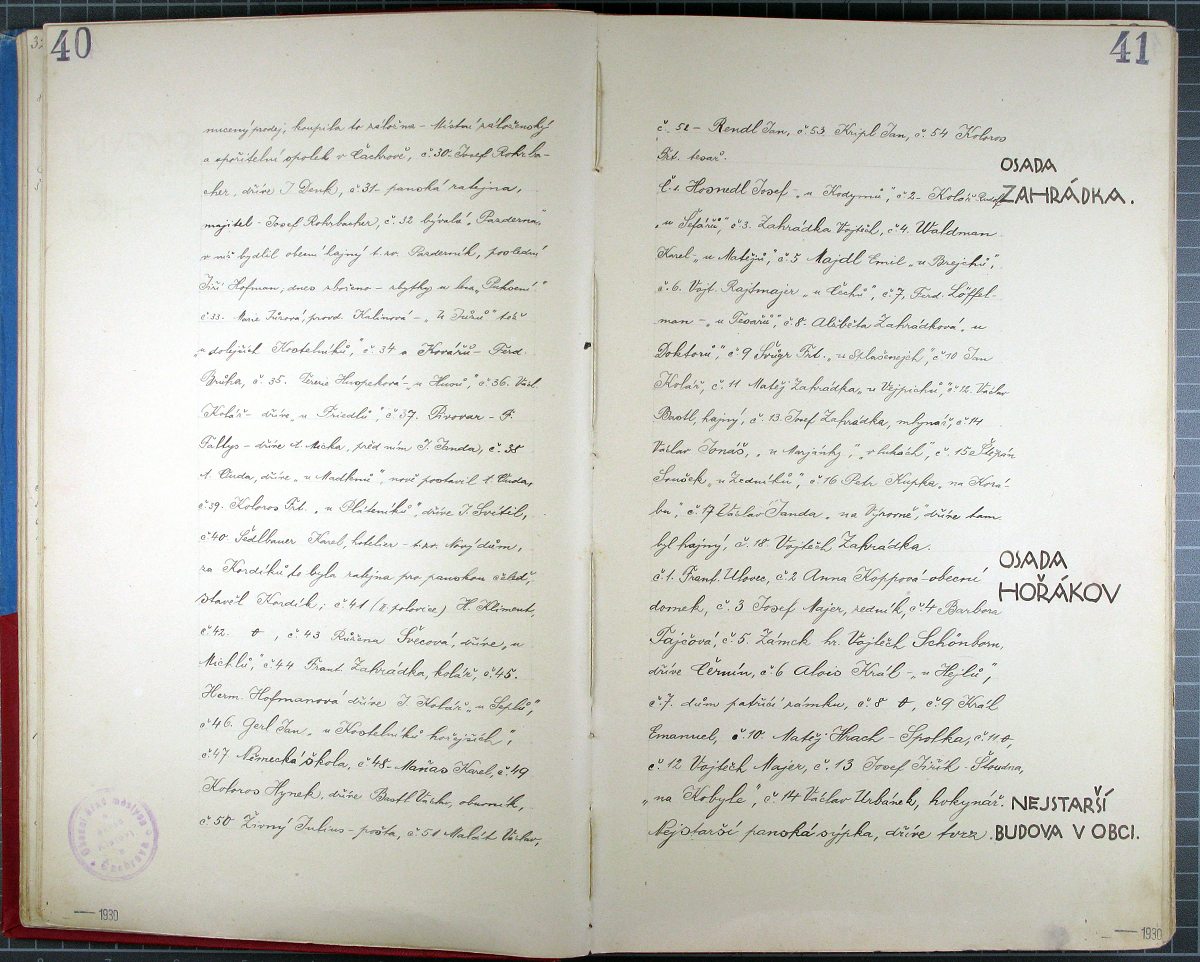 40
nucený prodej, koupila to záložna - Místní záloženský
a spořitelní spolek v Čachrově, č. 30 - Josef Rohrba-
cher, dříve J. Denk, č. 31 - panská ratejna,
majitel - Josef Rohrbacher, č. 32 bývalá „Pazderna“,
v níž bydlil obecní hajný t. zv. Pazderník, poslední
Jiří Hofman, dnes zbořeno - zbytky u lesa
č. 33. Marie Jůzová, provd. Kalinová - „U Jůzů“ též
„u dolejších Kostelníků“, č. 34 u Kovářů - Ferd.
Brůha, č. 35. Terezie „u Husů“, č. 36. Václ.
Kolář dříve „u Friedlů“, č. 37. Pivovar - F.
Pallys - dříve A. Micka, před ním J. Jenda, č. 38
A. Čuda, dříve „u Madlenů“, nově postavil A. Čuda,
č. 39. Koloros Frt. „u Pláteníků“, dříve J. Svitil,
č. 40 Sedlbauer Karel, hotelier - t. zv. Nový dům,
za Kordíků to byla ratejna pro panskou čeleď,
stavěl Kordík; č. 41 (II polovice) H. Kliment,
č. 42. 0, č. 43 Růžena Švecová, dříve „u
Michlů“, č. 44 Frant. Zahrádka, kolář, č. 45.
Herm. Hofmanová dříve J. Kolář „u Seplů“,
č. 46. Gerl Jan „u Kostelníků hořejších“,
č. 47 Německá škola, č. 48 - Maňas Karel, č. 49
Koloros Hynek, dříve Bastl Václ., obuvník,
č. 50 Živný Julius - pošta, č. 51 Malát Václav,
1930
41
č. 52 - Rendl Jan, č. 53 Kripl Jan, č. 54 Koloros
Frt. tesař.
OSADA
ZAHRÁDKA.
Č. 1. Hosnedl Josef - „u Kodymů“, č. 2 - Kolář Rudolf
„u Šefářů“, č. 3. Zahrádka Vojtěch, č. 4. Waldman
Karel - „u Matějů“, č. 5 Majdl Emil „u Brejchů“,
č. 6. Vojt. Rajtmajer „u Čechů“, č. 7. Ferd. Löffel-
man - „u Tesařů“, č. 8. Alžběta Zahrádková „u
Doktorů“, č. 9 Švígr Frt. „u Splašenejch“, č. 10 Jan
Kolář, č. 11 Matěj Zahrádka „u Vejpichů“, č. 12. Václav
Bastl, hajný, č. 13. Josef Zahrádka, mlynář, č. 14
Václav Jonáš, „u Marjánky“, „v lukách“, č. 15 Štěpán
Souček „u Zedníků“, č. 16 Petr Kupka „na Korá-
bu“, č. 17 Václav Janda „na Výrovně“, dříve tam
byl hajný, č. 18 Vojtěch Zahrádka.
OSADA
HOŘÁKOV
č. 1. Frant. Ulovec, č. 2 Anna Koppová - obecní
domek, č. 3 Josef Majer, zedník, č. 4 Barbora
Tajčová, č. 5. Zámek hr. Vojtěch Schönborn,
dříve Černín, č. 6 Alois Král - „u Hejlů“,
č. 7. dům patřící zámku, č. 8 0, č. 9 Král
Emanuel, č. 10. Matěj Hrach - Spolka, č. 11 0,
č. 12 Vojtěch Majer, č. 13 Josef Jiřík - Štoudna,
„na Kobyle“, č. 14 Václav Urbánek, hokynář.
NEJSTARŠÍ
BUDOVA V OBCI.
Nejstarší panská sýpka, dříve tvrz.
1930